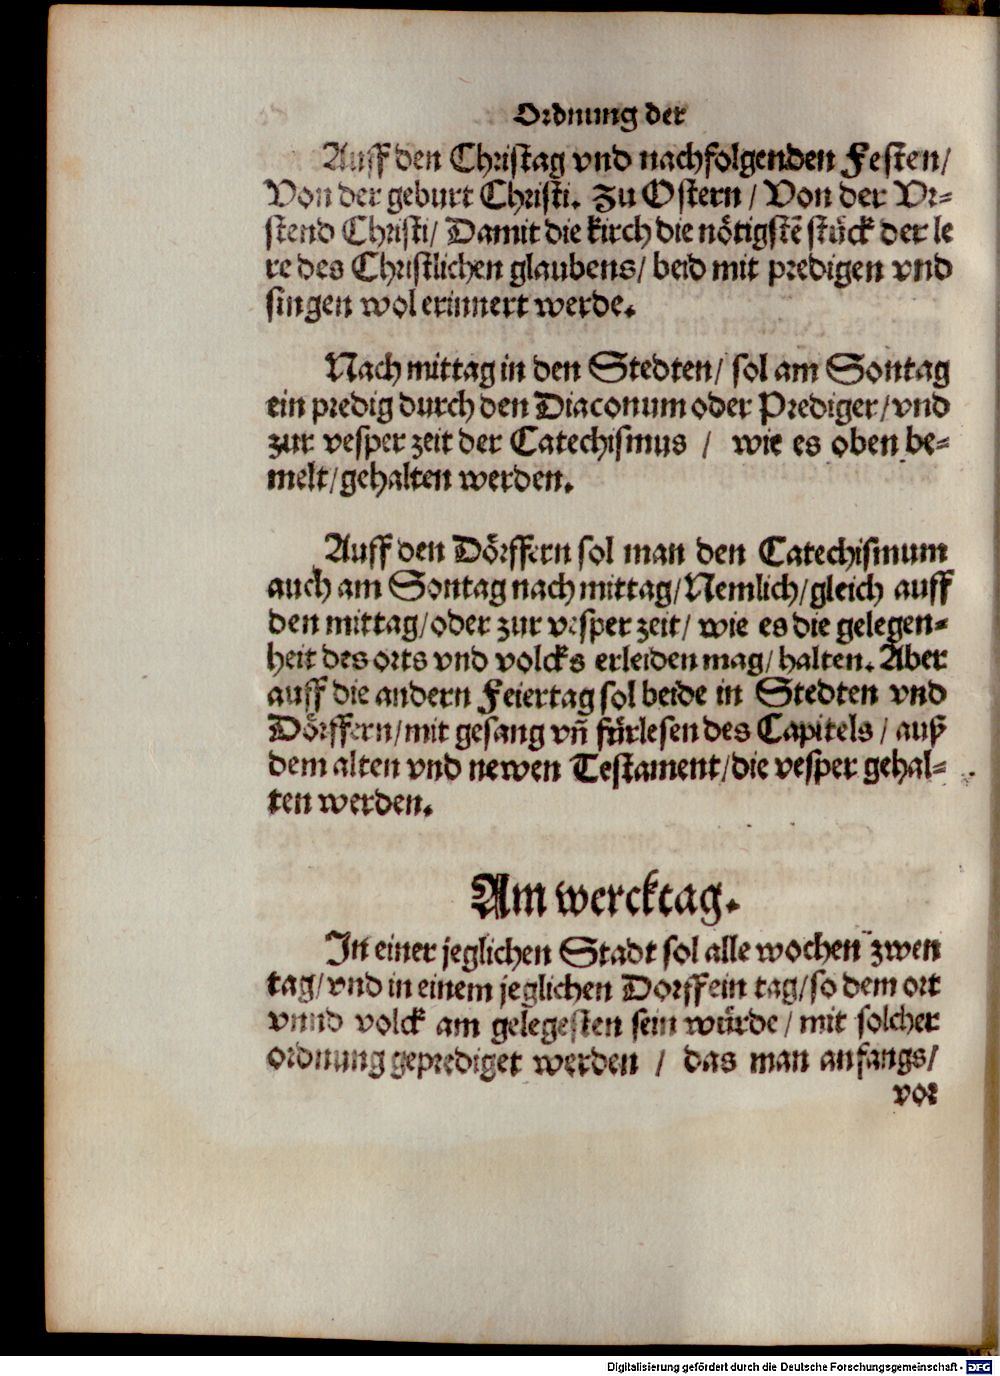 Ordnung der
Auff den Christag vnd nachfolgenden Festen/
Von der geburt Christi. Zu Ostern / Von der Vr-
stend Christi/ Damit die kirch die nötigstē stück der le
re des Christlichen glaubens/ beid mit predigen vnd
singen wol erinnert werde.
Nach mittag in den Stedten/ sol am Sontag
ein predig durch den Diaconum oder Prediger/vnd
zur vesper zeit der Catechismus / wie es oben be-
melt/gehalten werden.
Auff den Dörffern sol man den Catechismum
auch am Sontag nach mittag/Nemlich/gleich auff
den mittag/oder zur vesper zeit/ wie es die gelegen-
heit des orts vnd volcks erleiden mag/ halten. Aber
auff die andern Feiertag sol beide in Stedten vnd
Dörffern/mit gesang vñ fürlesen des Capitels / auß
dem alten vnd newen Testament/die vesper gehal-
ten werden.
Am wercktag.
In einer jeglichen Stadt sol alle wochen zwen
tag/vnd in einem jeglichen Dorff ein tag/so dem ort
vnnd volck am gelegesten sein würde / mit solcher
ordnung geprediget werden / das man anfangs/
vor
Digitalisierung gefördert durch die Deutsche Forschungsgemeinschaft - DFG